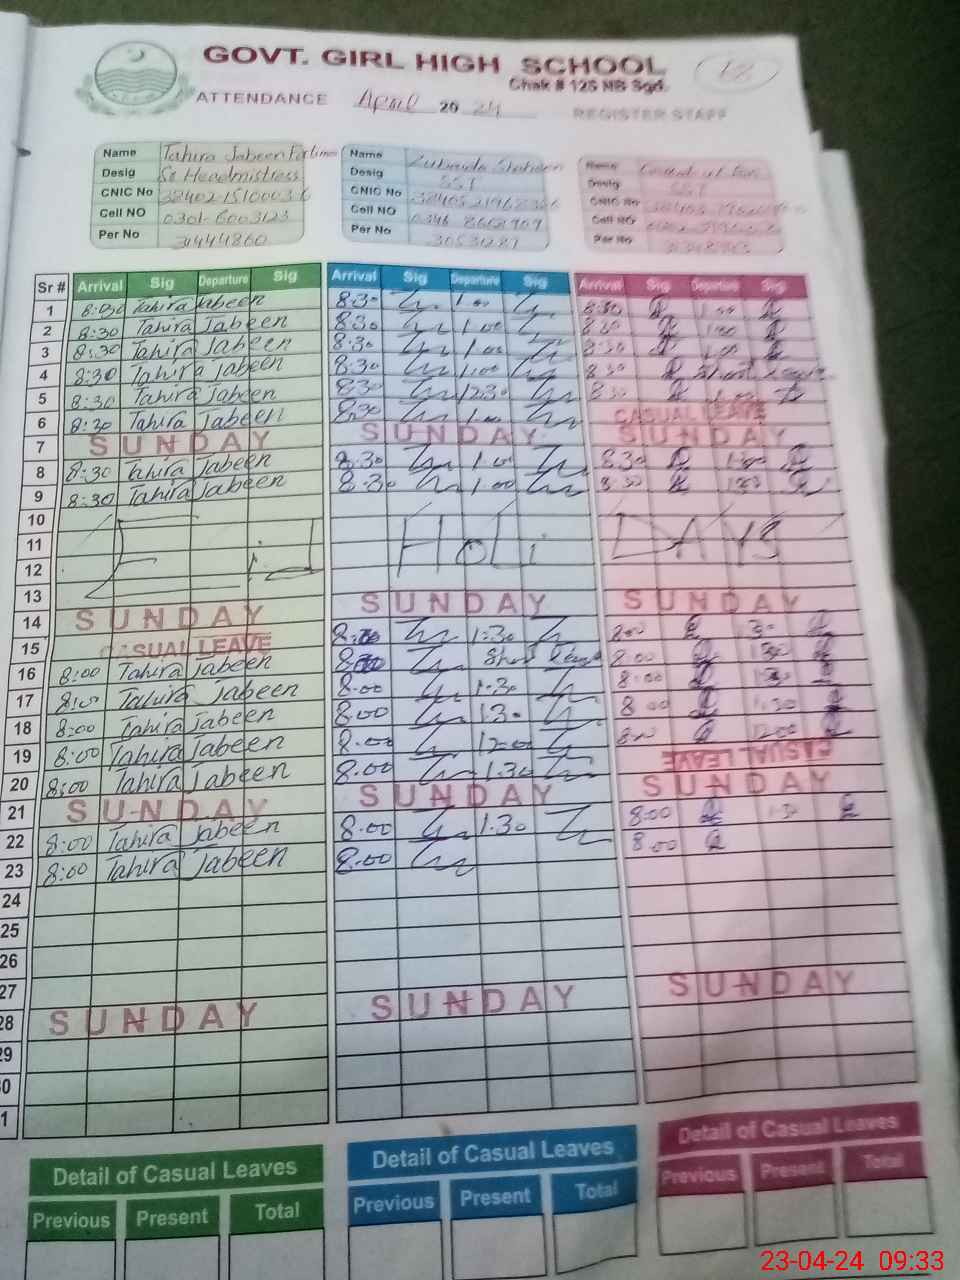 GOVT. GIRL HIGH SCHOOL
Chak # 125 NB Sgd.
18
ATTENDANCE April 2024 REGISTER STAFF
Name Tahira Jabeen Name Name
Desig Sr Headmistress Desig SST Desig SST
CNIC No CNIC No CNIC No
Cell NO 0301-6003123 Cell NO Cell No
Per No 31444860 Per No Per No
Sr # Arrival Sig Departure Sig Arrival Sig Departure Sig Arrival Sig Departure Sig
1 8:30 Tahira Jabeen 8:30 1:00 8:30 1:00
2 8:30 Tahira Jabeen 8:30 1:00 8:30 1:00
3 8:30 Tahira Jabeen 8:30 1:00 8:30 1:00
4 8:30 Tahira Jabeen 8:30 1:00 8:30 Short
5 8:30 Tahira Jabeen 8:30 12:30 8:30 1:00
6 8:30 Tahira Jabeen 8:30 1:00 CASUAL LEAVE
7 SUNDAY SUNDAY SUNDAY
8 8:30 Tahira Jabeen 8:30 1:00 8:30 1:00
9 8:30 Tahira Jabeen 8:30 1:00 8:30 1:00
10
11 Eid HOLi DAYS
12
13
14 SUNDAY SUNDAY SUNDAY
15 CASUAL LEAVE 1:30 8:00 1:30
16 8:00 Tahira Jabeen Short leave 8:00 1:30
17 8:00 Tahira Jabeen 8:00 1:30 8:00 1:30
18 8:00 Tahira Jabeen 8:00 1:30 8:00 1:30
19 8:00 Tahira Jabeen 8:00 12:00 8:00 12:00
20 8:00 Tahira Jabeen 8:00 1:30 CASUAL LEAVE
21 SUNDAY SUNDAY SUNDAY
22 8:00 Tahira Jabeen 8:00 1:30 8:00 1:30
23 8:00 Tahira Jabeen 8:00 8:00
24
25
26
27
28 SUNDAY SUNDAY SUNDAY
29
30
31
Detail of Casual Leaves Detail of Casual Leaves Detail of Casual Leaves
Previous Present Total Previous Present Total Previous Present Total
23-04-24 09:33